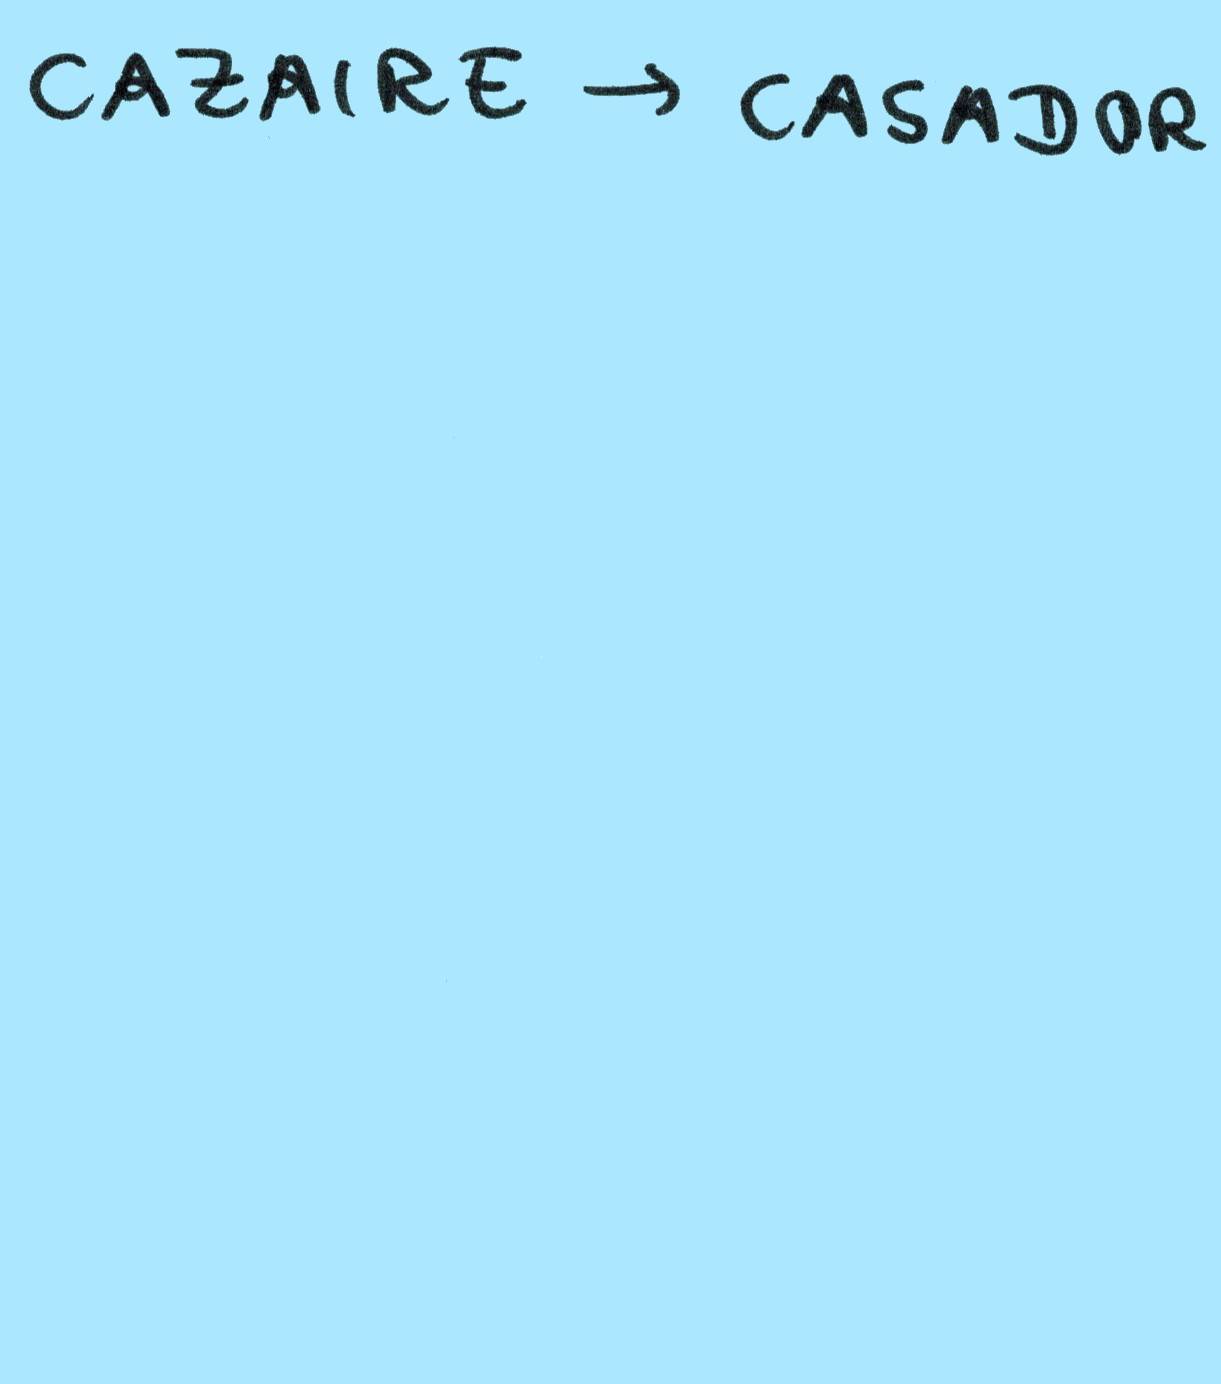 CAZAIRE → CASADOR